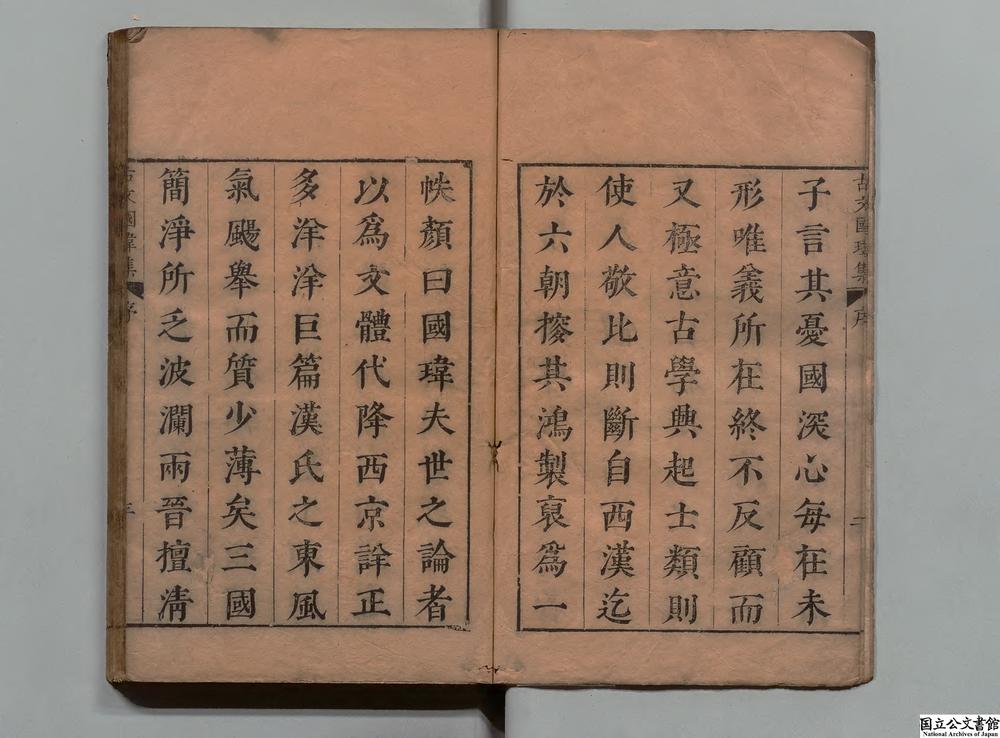 古文國瑋集
序
子言其憂國深心每在未
形唯義所在終不反顧而
又極意古學興起士類則
使人敬比則斷自西漢迄
於六朝撡其鴻製裒爲一
帙顏曰國瑋夫世之論者
以爲文體代降西京詳正
多洋洋巨篇漢氏之東風
氣颺舉而質少薄矣三國
簡淨所乏波瀾兩晉擅淸
古文國瑋集
序
国立公文書館
National Archives of Japan